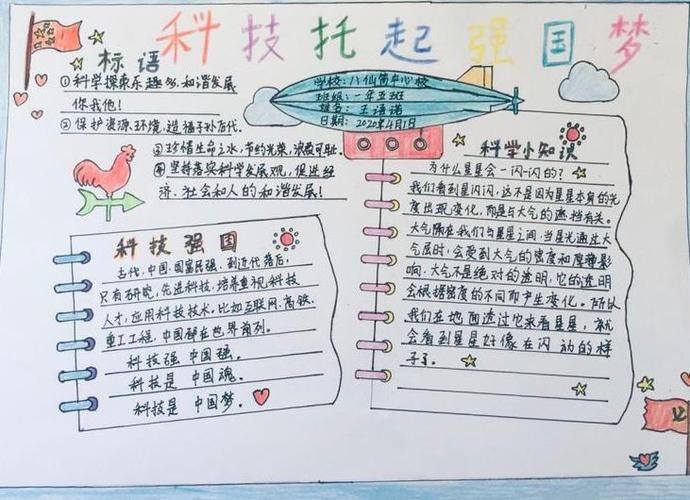 科技托起强国梦
标语
①科学探索乐趣多,和谐发展
你我他!
②保护资源环境,造福子孙后代.
③珍惜生命之水,节约光荣,浪费可耻.
④坚持落实科学发展观,促进经
济、社会和人的和谐发展!
学校:八仙筒中心校
班级:一年五班
姓名:王语诺
日期:2020年4月1日
科技强国
古代,中国,国富民强,到近代落后,
只有研究,先进科技,培养重视,科技
人才,应用科技技术。比如互联网、高铁、
重工工程,中国都在世界前列。
科技强 中国强。
科技是 中国魂。
科技是 中国梦。
科学小知识
为什么星星会一闪一闪的?
我们看到星闪闪,这不是因为星星本身的光
度出现变化,而是与大气的遮挡有关。
大气隔在我们与星星之间,当星光通过大
气层时,会受到大气的密度和厚薄影
响,大气不是绝对的透明,它的透明
会根据密度的不同而产生变化。所以
我们在地面透过它来看星星,就
会看到星星好像在闪动的样
子了。